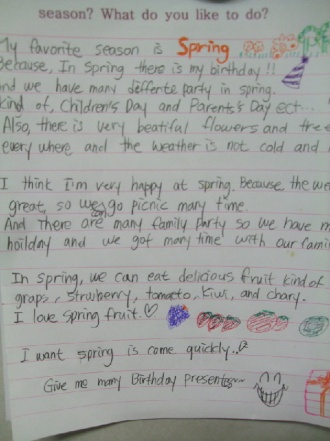 season? What do you like to do?
My favorite season is Spring
Because, In Spring there is my birthday!!
and we have many defferte party in spring.
kind of, Children's Day and Parent's Day ect...
Also, there is very beatiful flowers and tree
every where and the weather is not cold and
I think I'm very happy at spring. Because the we
great, so we go picnic many time.
And There are many family party so we have m
hoilday and we got many time with our famil
In Spring, we can eat delicious fruit kind of
grape, strwberry, tomato, kiwi, and chary.
I love spring fruit.
I want spring is come quickly..
Give me many Birthday presentes~~